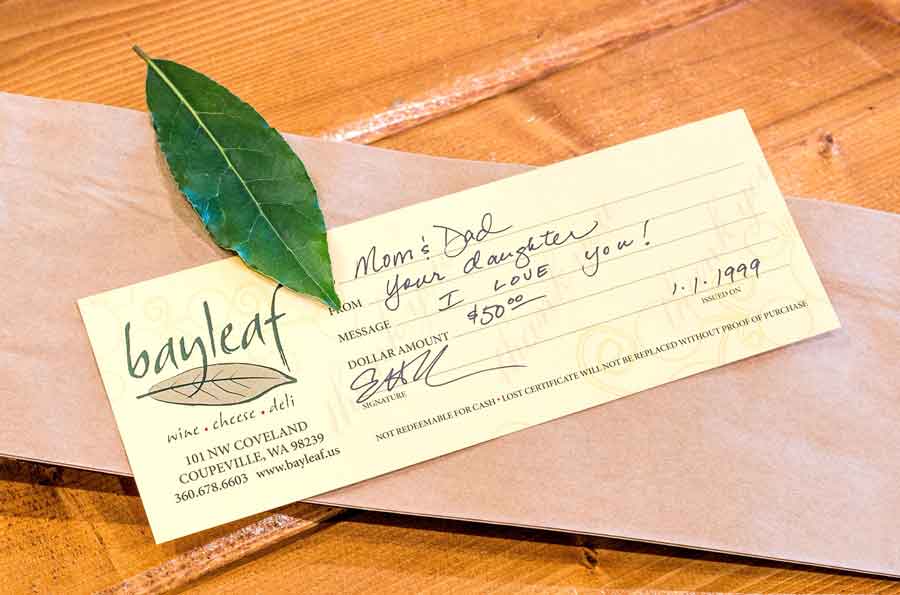 bayleaf
wine • cheese • deli
101 NW COVELAND
COUPEVILLE, WA 98239
360.678.6603 www.bayleaf.us
Mom & Dad
FROM your daughter
MESSAGE I LOVE you!
DOLLAR AMOUNT $50.00 1.1.1999
ISSUED ON
SIGNATURE
NOT REDEEMABLE FOR CASH • LOST CERTIFICATE WILL NOT BE REPLACED WITHOUT PROOF OF PURCHASE